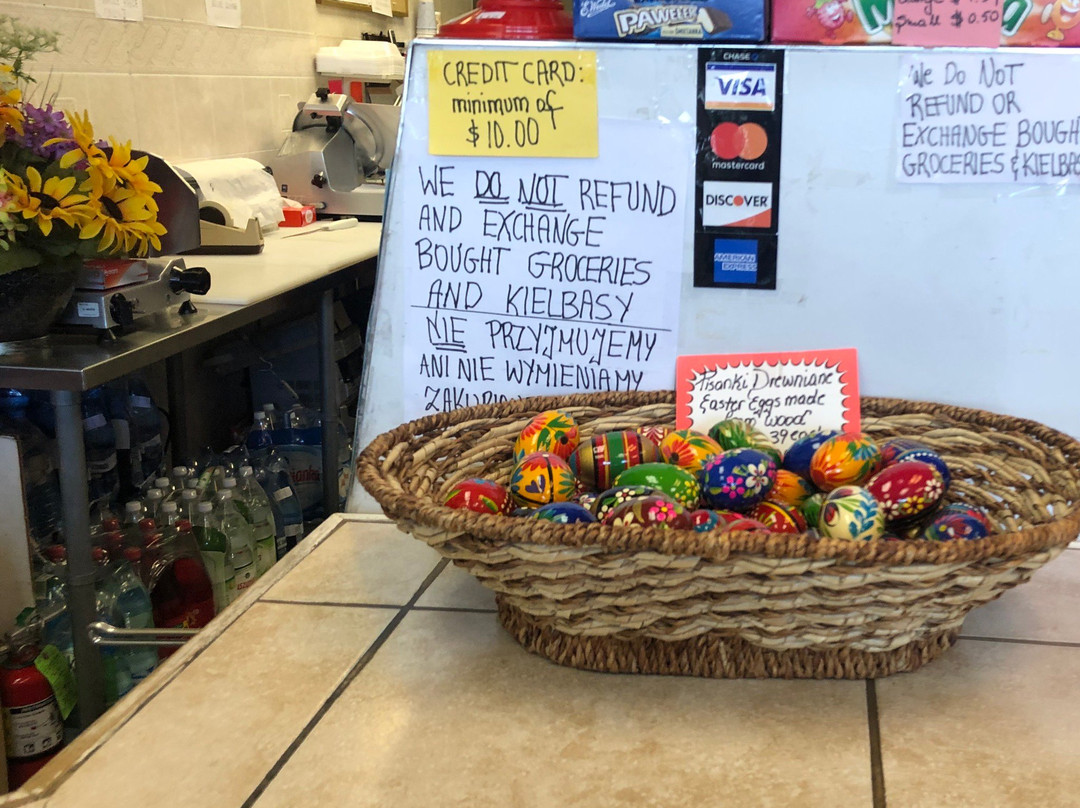 PAWEŁEK
Small $0.50
CREDIT CARD:
minimum of
$10.00
WE DO NOT REFUND
AND EXCHANGE
BOUGHT GROCERIES
AND KIELBASY
NIE PRZYJMUJEMY
ANI NIE WYMIENIAMY
CHASE
VISA
mastercard
DISCOVER
AMERICAN
EXPRESS
We Do NoT
REFUND OR
EXCHANGE BOUGH
GROCERIES & KIELBA
Pisanki Drewniane
Easter Eggs made
Wood